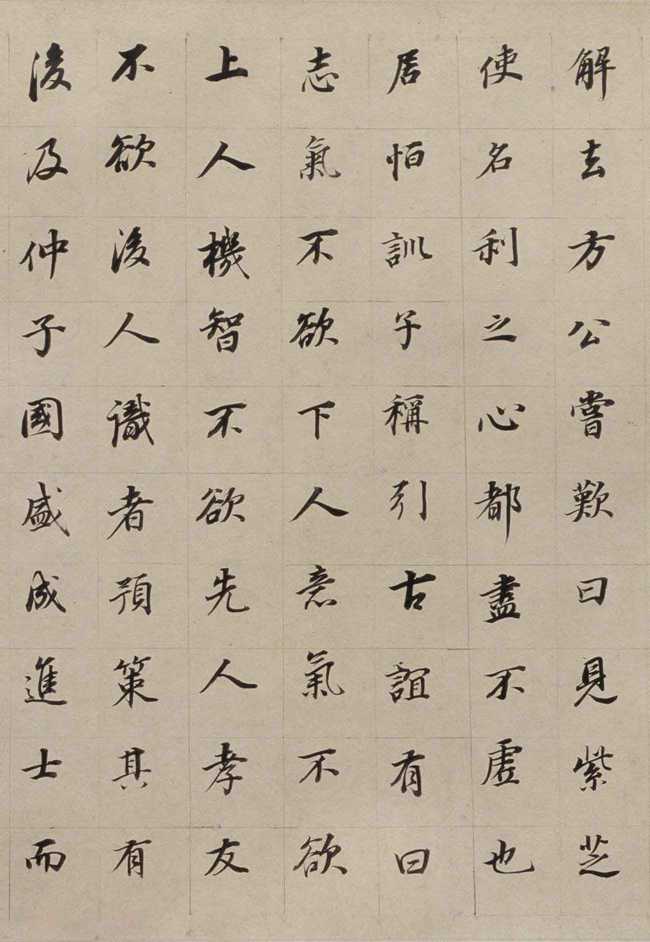 解去方公嘗歎曰見紫芝
使名利之心都盡不虛也
居怕訓子稱引古誼有曰
志氣不欲下人意氣不欲
上人機智不欲先人孝友
不欲後人識者預策其有
後及仲子國盛成進士而